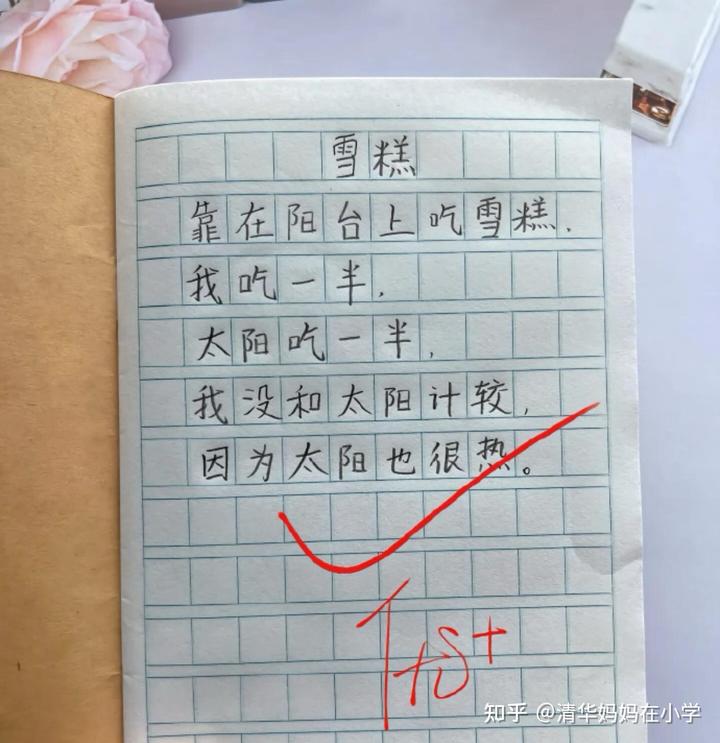 雪糕
靠在阳台上吃雪糕,
我吃一半,
太阳吃一半,
我没和太阳计较,
因为太阳也很热。
优+
知乎 @清华妈妈在小学